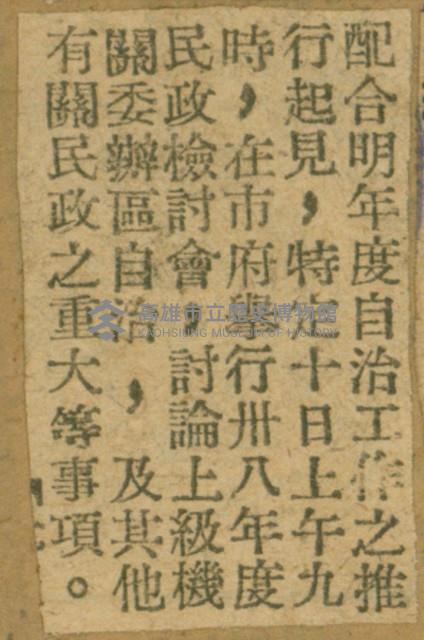 配合明年度自治工作之推
行起見，特十日上午九
時，在市府舉行卅八年度
民政檢討會，討論上級機
關委辦區自治，及其他
有關民政之重大等事項。
高雄市立歷史博物館
KAOHSIUNG MUSEUM OF HISTORY